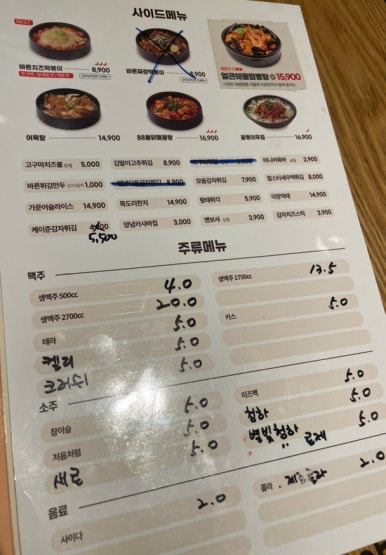 사이드메뉴
BEST
바른치즈떡볶이 8,900
바른짜장떡볶이 8,900
얼큰해물짬뽕탕 15,900
어묵탕 14,900
88불닭볶음탕 14,900
골뱅이무침 16,900
고구마치즈볼 5,000
김말이고추튀김 8,900
바른튀김만두 1,000
모둠감자튀김 7,900
가문어슬라이스 14,900
먹도리한치 14,900
황태튀각 5,900
먹장먹태 14,900
케이준감자튀김
5,500
양념카사바칩 3,000
멘보샤 3,900
감자치즈스틱 3,900
주류메뉴
맥주
생맥주 500cc 4.0
생맥주 1700cc 13.5
생맥주 2700cc 20.0
카스 5.0
테라 5.0
켈리 5.0
크러쉬 5.0
소주
참이슬 5.0
이즈백 5.0
처음처럼 5.0
청하 5.0
새로 5.0
별빛청하 5.0
로제
음료
사이다 2.0
콜라 제로콜라 2.0